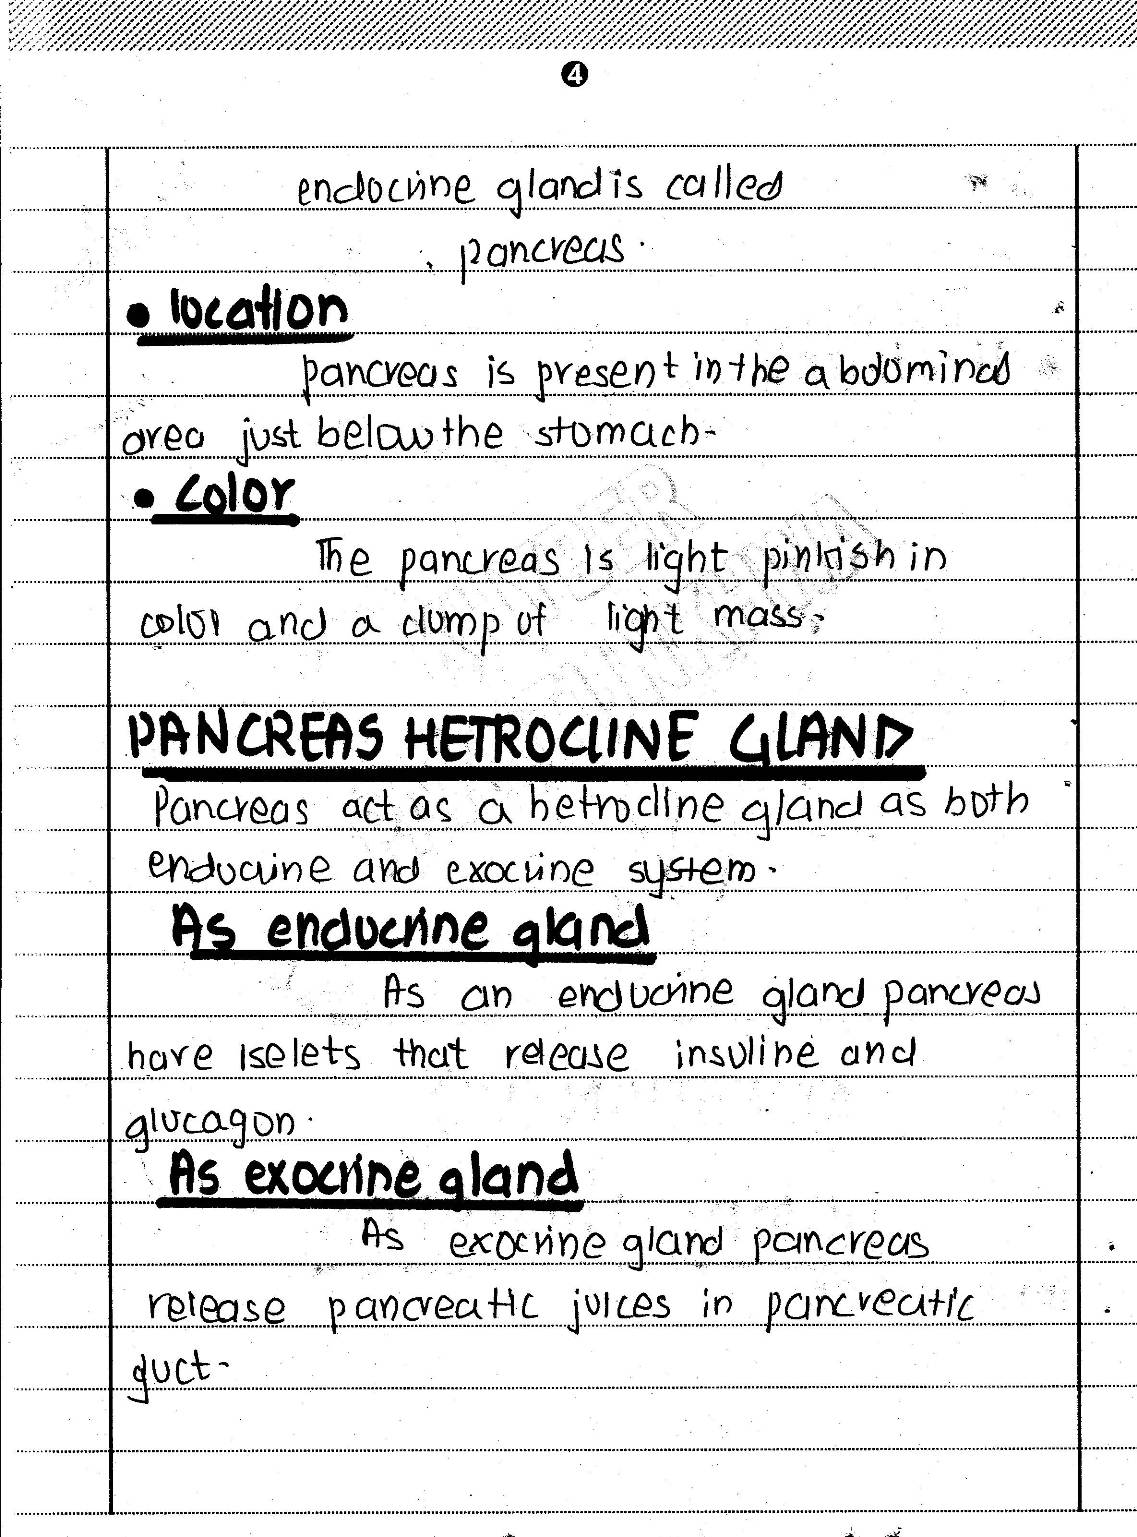 4
endocrine gland is called
pancreas.
• location
pancreas is present in the abdominal
area just below the stomach-
• Color
The pancreas is light pinkish in
color and a clump of light mass.
PANCREAS HETROCLINE GLAND
Pancreas act as a hetrocline gland as both
endocrine and exocrine system.
As endocrine gland
As an endocrine gland pancreas
have Iselets that release insuline and
glucagon.
As exocrine gland
As exocrine gland pancreas
release pancreatic juices in pancreatic
duct-